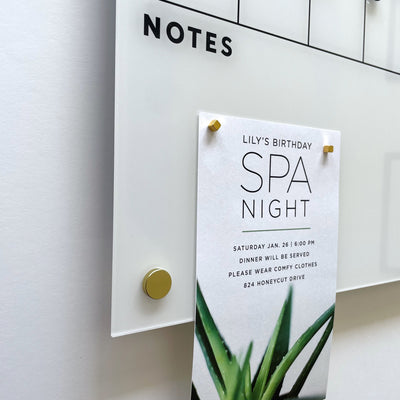 NOTES
LILY'S BIRTHDAY
SPA
NIGHT
SATURDAY JAN. 26 | 6:00 PM
DINNER WILL BE SERVED
PLEASE WEAR COMFY CLOTHES
824 HONEYCUT DRIVE